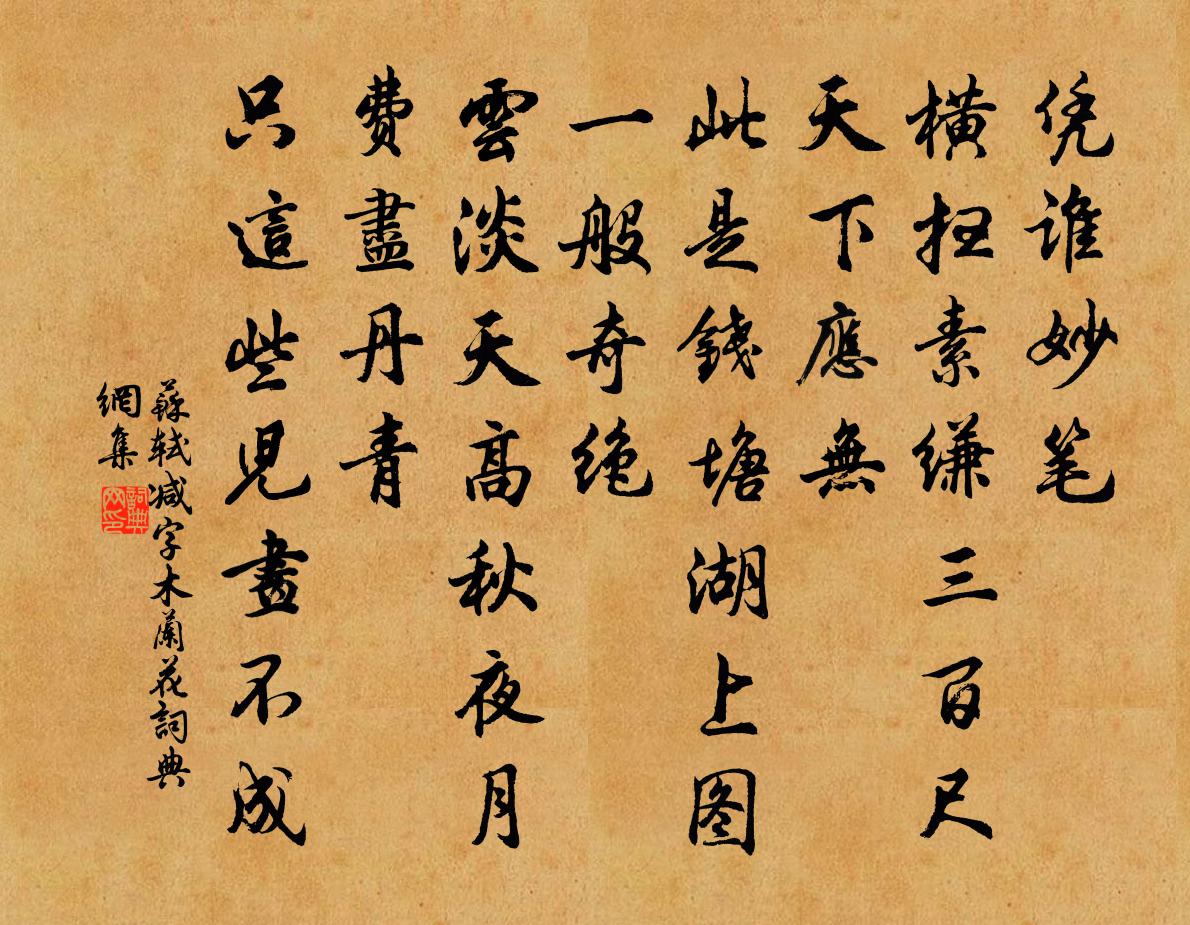 凭谁妙笔
橫扫素缣三百尺
天下應無
此是錢塘湖上图
一般奇绝
雲淡天高秋夜月
費盡丹青
只這些兒畫不成
蘇軾减字木蘭花詞典
網集
詞典
网印